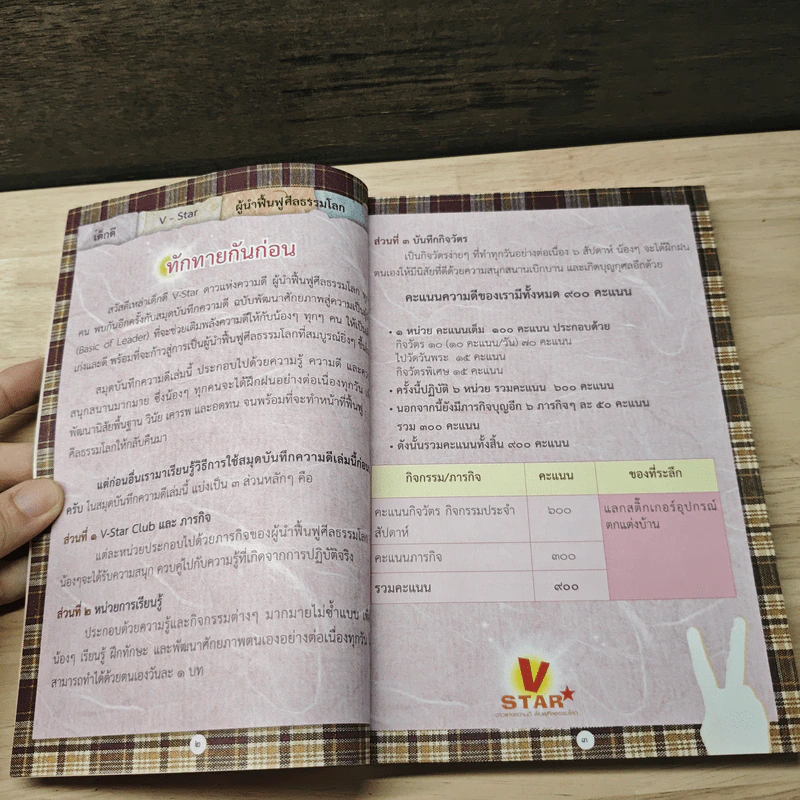 เด็กดี
V - Star
ผู้นำฟื้นฟูศีลธรรมโลก
ทักทายกันก่อน
สวัสดีเหล่าเด็กดี V-Star ดาวแห่งความดี ผู้นำฟื้นฟูศีลธรรมโลก
คน พบกันอีกครั้งกับสมุดบันทึกความดี ฉบับพัฒนาศักยภาพสู่ความเป็น
(Basic of Leader) ที่จะช่วยเติมพลังความดีให้กับน้องๆ ทุกๆ คน ให้เป็น
เก่งและดี พร้อมที่จะก้าวสู่การเป็นผู้นำฟื้นฟูศีลธรรมโลกที่สมบูรณ์ยิ่งๆ ขึ้น
สมุดบันทึกความดีเล่มนี้ ประกอบไปด้วยความรู้ ความดี และ
สนุกสนานมากมาย ซึ่งน้องๆ ทุกคนจะได้ฝึกฝนอย่างต่อเนื่องทุกวัน
พัฒนานิสัยพื้นฐาน วินัย เคารพ และอดทน จนพร้อมที่จะทำหน้าที่ฟื้นฟู
ศีลธรรมโลกให้กลับคืนมา
แต่ก่อนอื่นเรามาเรียนรู้วิธีการใช้สมุดบันทึกความดีเล่มนี้ก่อน
ครับ ในสมุดบันทึกความดีเล่มนี้ แบ่งเป็น ๓ ส่วนหลักๆ คือ
ส่วนที่ ๑ V-Star Club และ ภารกิจ
แต่ละหน่วยประกอบไปด้วยภารกิจของผู้นำฟื้นฟูศีลธรรมโลก
น้องๆจะได้รับความสนุก ควบคู่ไปกับความรู้ที่เกิดจากการปฏิบัติจริง
ส่วนที่ ๒ หน่วยการเรียนรู้
ประกอบด้วยความรู้และกิจกรรมต่างๆ มากมายไม่ซ้ำแบบ
น้องๆ เรียนรู้ ฝึกทักษะ และพัฒนาศักยภาพตนเองอย่างต่อเนื่องทุกวัน
สามารถทำได้ด้วยตนเองวันละ ๑ บท
๒
ส่วนที่ ๓ บันทึกกิจวัตร
เป็นกิจวัตรง่ายๆ ที่ทำทุกวันอย่างต่อเนื่อง ๖ สัปดาห์ น้องๆ จะได้ฝึกฝน
ตนเองให้มีนิสัยที่ดีด้วยความสนุกสนานเบิกบาน และเกิดบุญกุศลอีกด้วย
คะแนนความดีของเรามีทั้งหมด ๙๐๐ คะแนน
• ๑ หน่วย คะแนนเต็ม ๑๐๐ คะแนน ประกอบด้วย
กิจวัตร ๑๐ (๑๐ คะแนน/วัน) ๗๐ คะแนน
ไปวัดวันพระ ๑๕ คะแนน
กิจวัตรพิเศษ ๑๕ คะแนน
• ครั้งนี้ปฏิบัติ ๖ หน่วย รวมคะแนน ๖๐๐ คะแนน
• นอกจากนี้ยังมีภารกิจบุญอีก ๖ ภารกิจๆ ละ ๕๐ คะแนน
รวม ๓๐๐ คะแนน
• ดังนั้นรวมคะแนนทั้งสิ้น ๙๐๐ คะแนน
กิจกรรม/ภารกิจ คะแนน ของที่ระลึก
คะแนนกิจวัตร กิจกรรมประจำ ๖๐๐ แลกสติ๊กเกอร์อุปกรณ์
สัปดาห์ ตกแต่งบ้าน
คะแนนภารกิจ ๓๐๐
รวมคะแนน ๙๐๐
V
STAR
๓